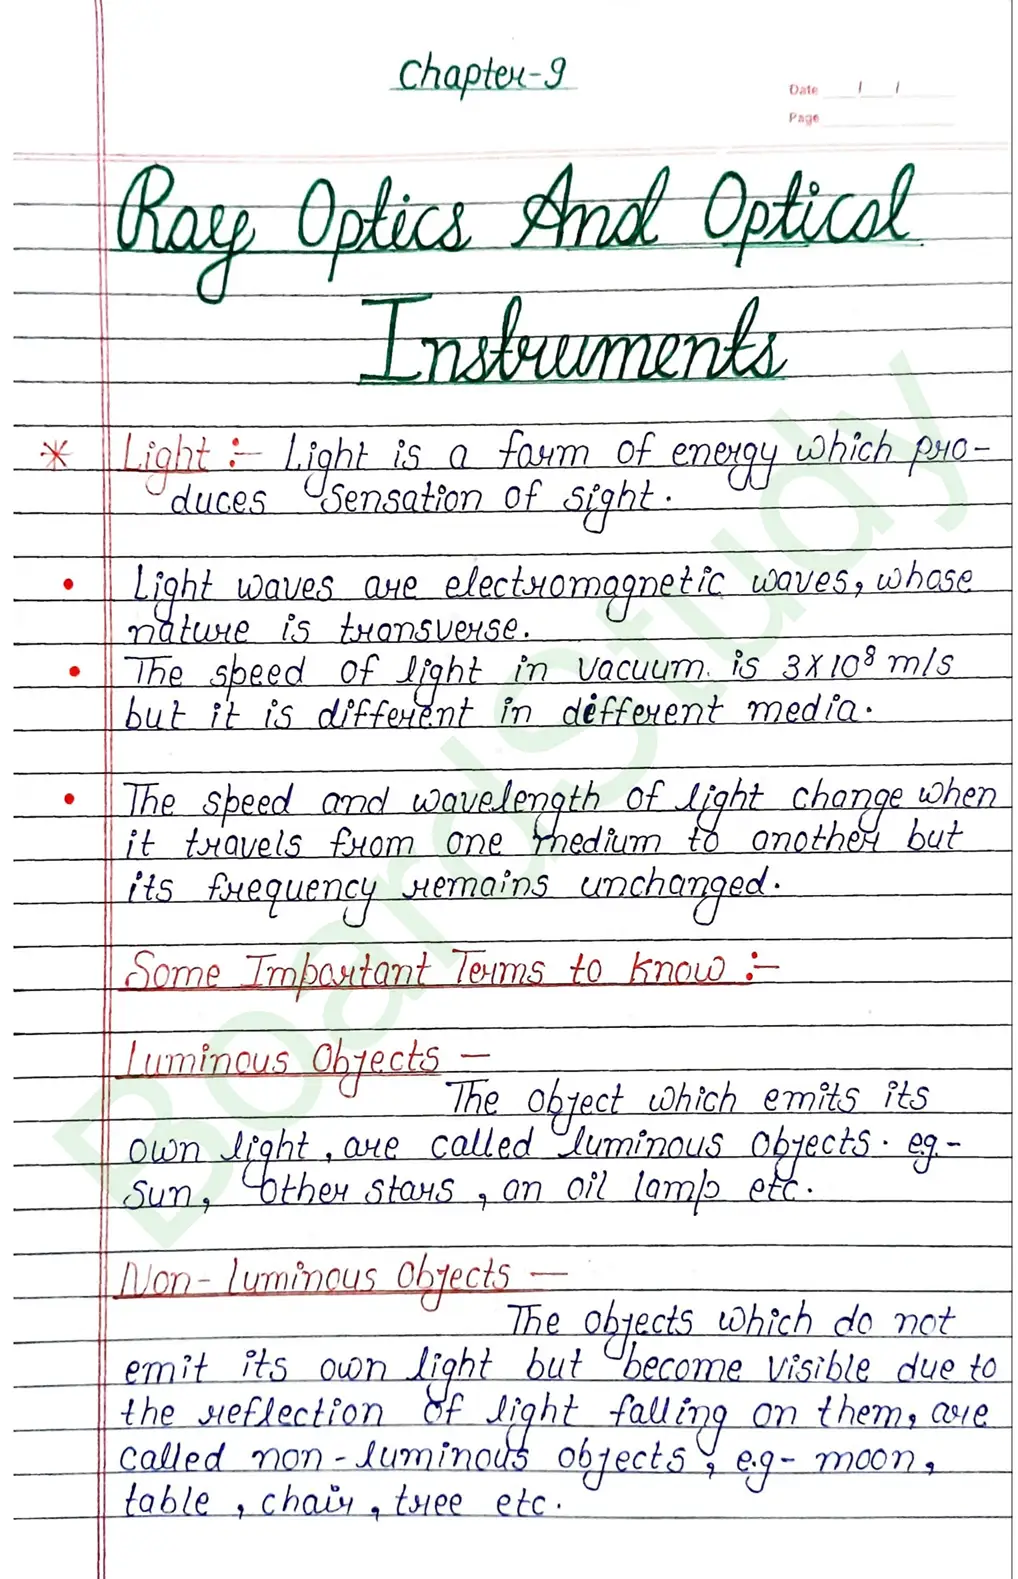 Chapter-9
Date / /
Page
Ray Optics And Optical
Instruments
* Light :- Light is a form of energy which pro-
duces sensation of sight.
• Light waves are electromagnetic waves, whose
nature is transverse.
• The speed of light in vacuum is 3×10⁸ m/s
but it is different in different media.
• The speed and wavelength of light change when
it travels from one medium to another but
its frequency remains unchanged.
Some Important Terms to know :-
Luminous Objects —
The object which emits its
own light, are called luminous objects. eg-
sun, other stars, an oil lamp etc.
Non-luminous Objects —
The objects which do not
emit its own light but become visible due to
the reflection of light falling on them, are
called non-luminous objects, e.g- moon,
table, chair, tree etc.
BoardStudy